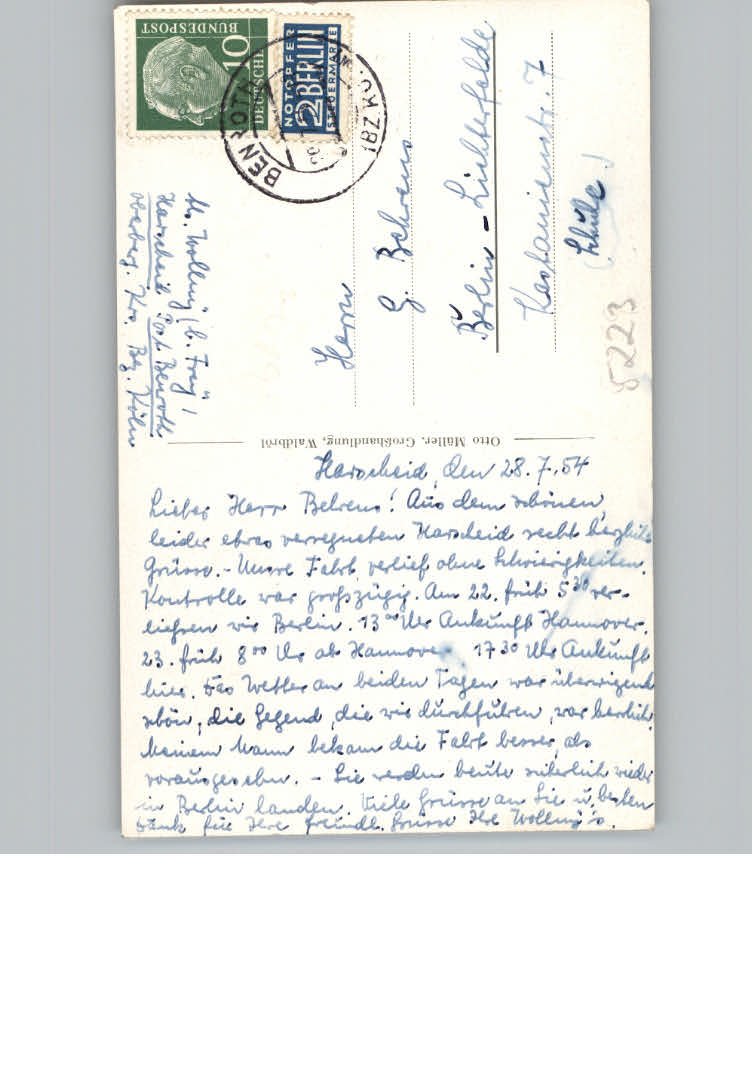 DEUTSCHE
BUNDESPOST
10
NOTOPFER
2 BERLIN
STEUERMARKE
BENROTH
(BZ KÖ
M. Wolling (b. Frey)
Harscheid Post Benroth
Oberberg. Krs. Bez. Köln
Herrn
G. Behrens
Berlin - Lichterfelde
Kastanienstr. 7
(Schule)
5223
Otto Müller, Großhandlung, Waldbröl
Harscheid, den 28.7.54
Lieber Herr Behrens! Aus dem schönen,
leider etwas verregneten Harscheid recht herzliche
Grüsse. - Unsre Fahrt verlief ohne Schwierigkeiten.
Kontrolle war großzügig. Am 22. früh 5³⁰ ver-
liessen wir Berlin. 13⁰⁰ Uhr Ankunft Hannover.
23. früh 8⁰⁰ Uhr ab Hannover 17³⁰ Uhr Ankunft
hier. Das Wetter an beiden Tagen war überwiegend
schön, die Gegend, die wir durchfuhren, war herrlich.
Meinem Mann bekam die Fahrt besser, als
vorausgesehn. - Sie werden heute sicherlich wieder
in Berlin landen. Viele Grüsse an Sie u. besten
Dank für Ihre freundl. Grüsse Ihre Wolling's.